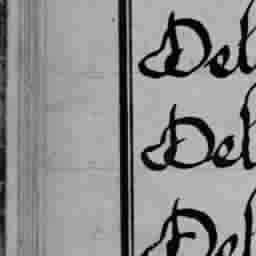 Del
Del
Del